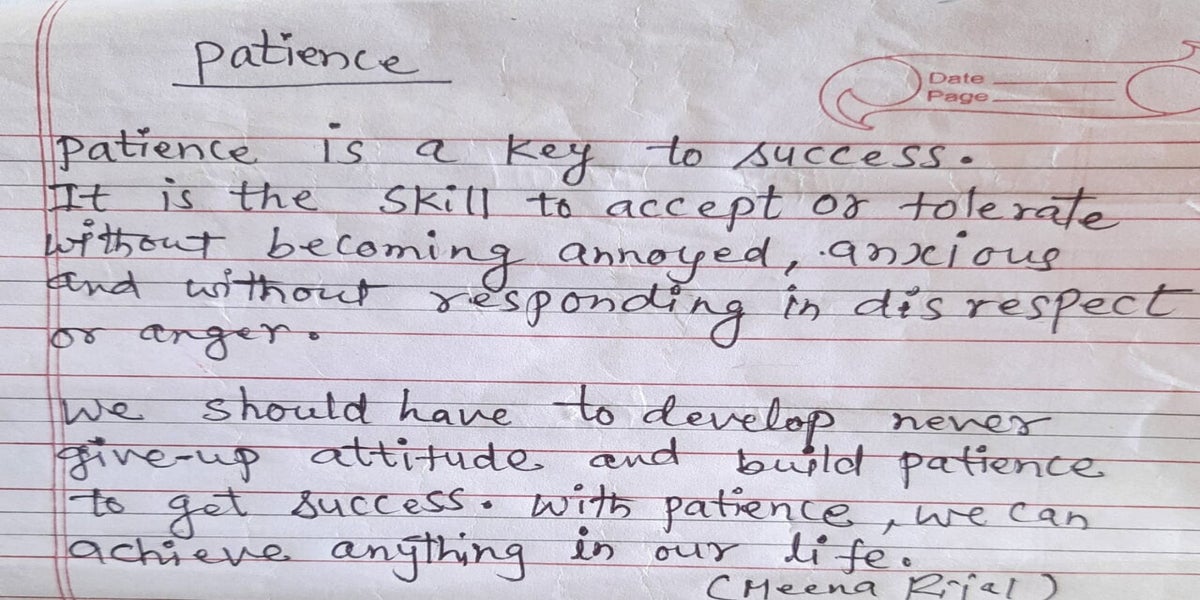 patience
Date
Page
patience is a key to success.
It is the skill to accept or tolerate
without becoming annoyed, anxious
and without responding in disrespect
or anger.
we should have to develop never
give-up attitude and build patience
to get success. with patience, we can
achieve anything in our life.
(Meena Rijal)